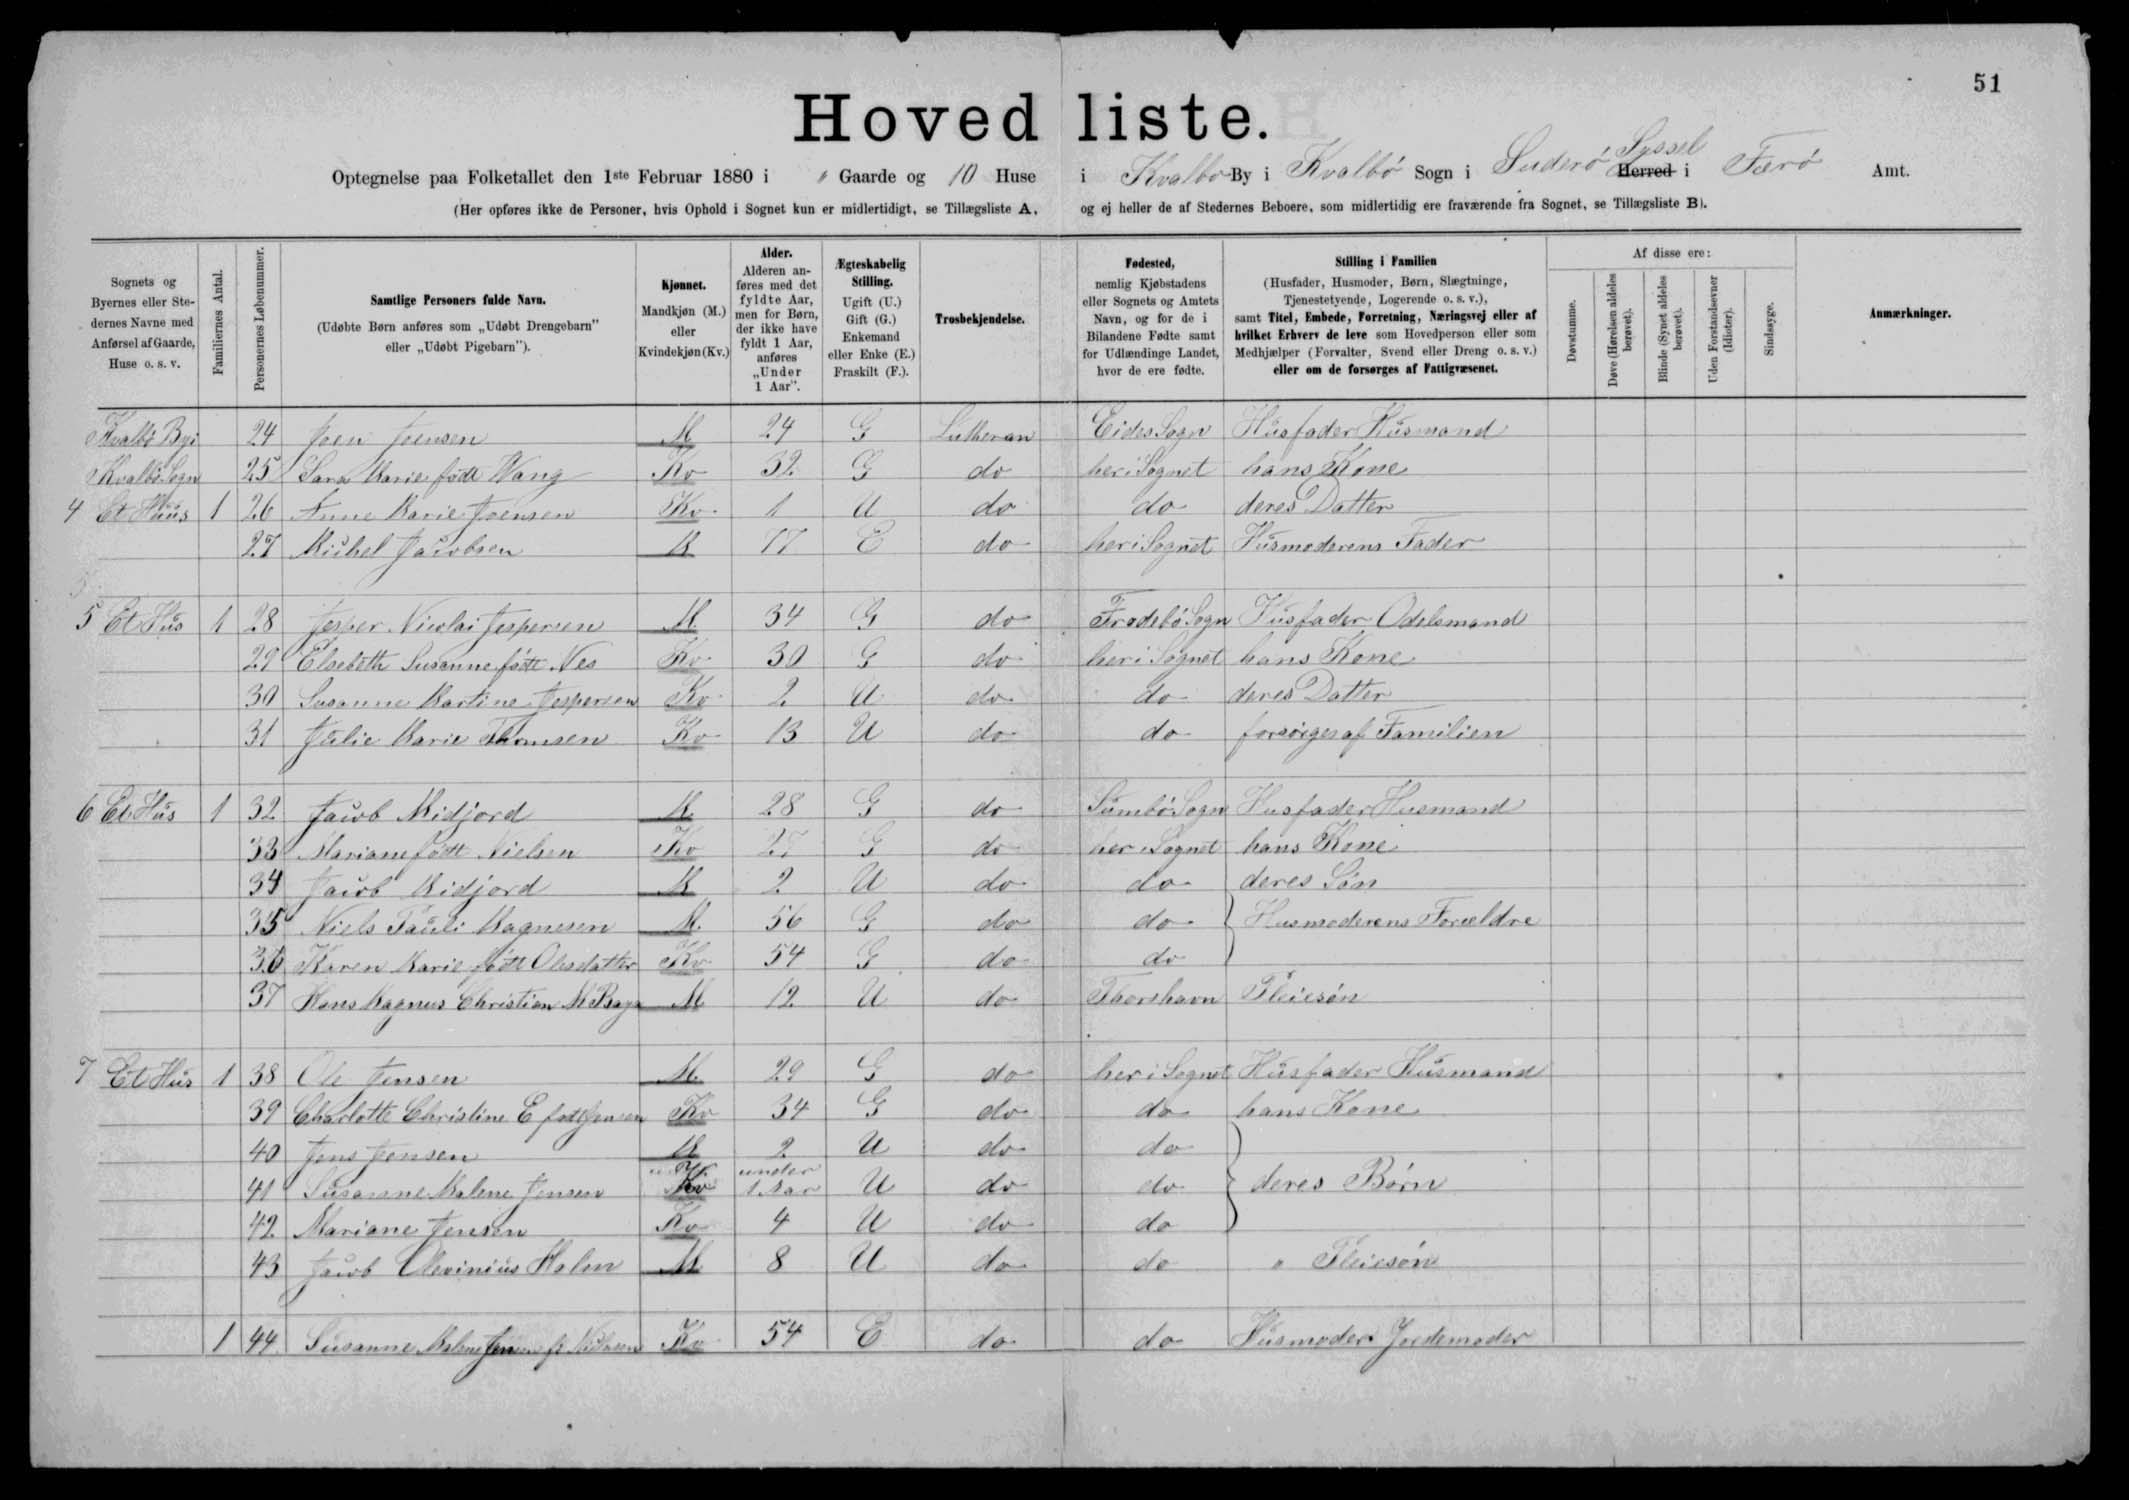 51
Hovedliste.
Optegnelse paa Folketallet den 1ste Februar 1880 i " Gaarde og 10 Huse i Kvalbo By i Kvalbø Sogn i Suderø Syssel Herred i Færø Amt.
(Her opføres ikke de Personer, hvis Ophold i Sognet kun er midlertidigt, se Tillægsliste A, og ej heller de af Stedernes Beboere, som midlertidig ere fraværende fra Sognet, se Tillægsliste B).
Sognets og Byernes eller Stedernes Navne med Anførsel af Gaarde, Huse o. s. v.
Familiernes Antal.
Personernes Løbenummer.
Samtlige Personers fulde Navn.
(Udøbte Børn anføres som „Udøbt Drengebarn" eller „Udøbt Pigebarn").
Kjønnet.
Mandkjøn (M.) eller Kvindekjøn (Kv.)
Alder.
Alderen anføres med det fyldte Aar, men for Børn, der ikke have fyldt 1 Aar, anføres „Under 1 Aar".
Ægteskabelig Stilling.
Ugift (U.) Gift (G.) Enkemand eller Enke (E.) Fraskilt (F.).
Trosbekjendelse.
Fødested,
nemlig Kjøbstadens eller Sognets og Amtets Navn, og for de i Bilandene Fødte samt for Udlændinge Landet, hvor de ere fødte.
Stilling i Familien
(Husfader, Husmoder, Børn, Slægtninge, Tjenestetyende, Logerende o. s. v.), samt Titel, Embede, Forretning, Næringsvej eller af hvilket Erhverv de leve som Hovedperson eller som Medhjælper (Forvalter, Svend eller Dreng o. s. v.) eller om de forsørges af Fattigvæsenet.
Af disse ere:
Døvstumme.
Døve (Hørelsen aldeles berøvet).
Blinde (Synet aldeles berøvet).
Uden Forstandsevner (Idioter).
Sindssyge.
Anmærkninger.
Kvalbø Byi 24 Joen Joensen M 24 G Lutheran Eides Sogn Husfader Husmand
Kvalbø Sogn 25 Sara Marie født Wang Kv 32 G do her i Sognet hans Kone
4 Et Huus 1 26 Anne Marie Joensen Kv 1 U do do deres Datter
27 Michel Jacobsen M 77 E do her i Sognet Husmoderens Fader
5 Et Hus 1 28 Jesper Nicolai Jespersen M 34 G do Frodebø Sogn Husfader Odelsmand
29 Elsebeth Susanne født Nes Kv 30 G do her i Sognet hans Kone
30 Susanne Martine Jespersen Kv 2 U do do deres Datter
31 Julie Marie Thomsen Kv 13 U do do forsørges af Familien
6 Et Hus 1 32 Jacob Midjord M 28 G do Sumbø Sogn Husfader Husmand
33 Mariane født Nielsen Kv 27 G do her i Sognet hans Kone
34 Jacob Midjord M 2 U do do deres Søn
35 Niels Pauli Magnesen M. 56 G do do } Husmoderens Forældre
36 Karen Marie født Olesdatter Kv 54 G do do
37 Hans Magnus Christian M M 12 U do Thorshavn Pleiesøn
7 Et Hus 1 38 Ole Jensen M. 29 G do her i Sognet Husfader Husmand
39 Charlotte Christine E født Jensen Kv 34 G do do hans Kone
40 Jens Jensen M 2 U do do
41 Susanne Malene Jensen Kv under 1 Aar U do do } deres Børn
42 Mariane Jensen Kv 4 U do do
43 Jacob Olevinius Holm M 8 U do do " Pleiesøn
1 44 Susanne Malene Jensen f. Kv 54 E do do Husmoder Jordemoder